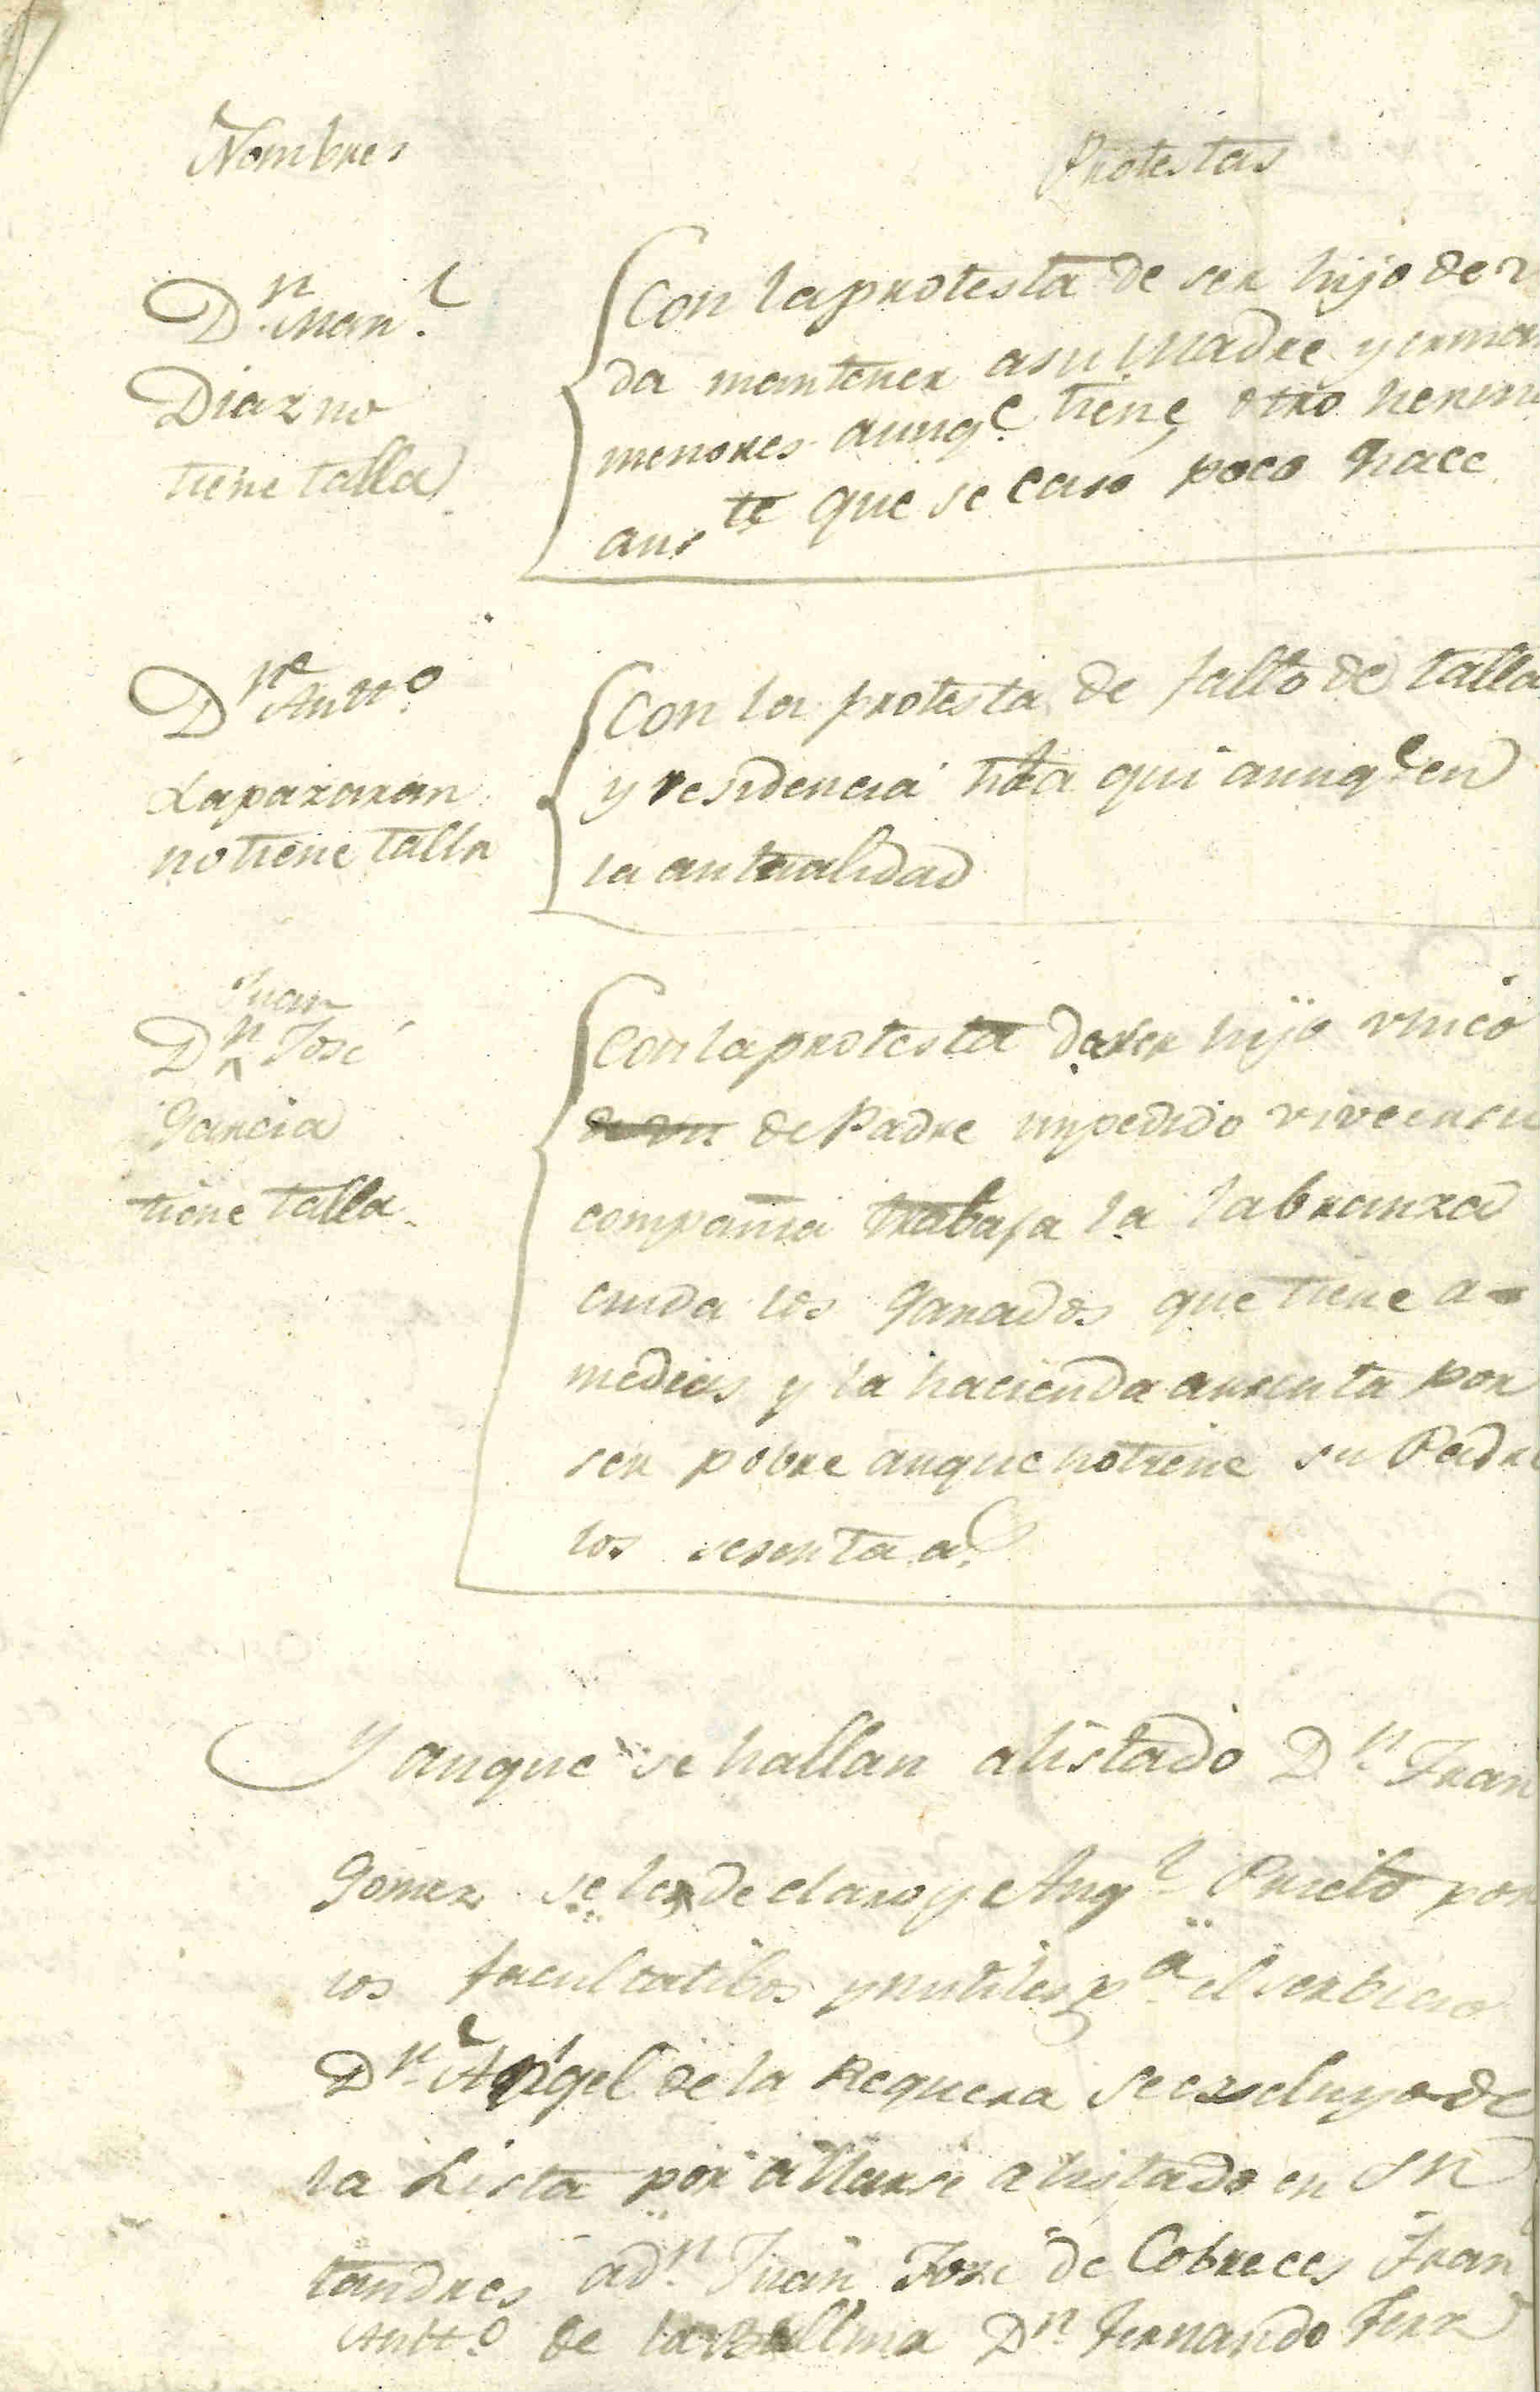 Nombres
Protestas
Dn. Man.l
Diaz no
tiene talla
Con laprotesta de ser hijo de v
da mantener asu Madre y erma
menores aunq.e tiene otro herm
auste que se casó poco hace
Dn. Antto.
Laparazan
no tiene talla
Con la protesta de falto de talla
y residencia hta qui aunq.e en
la antualidad
Juan
Dn. José
Garcia
tiene talla
Con la protesta deser hijo vnico
de Padre impedido vive ensu
compañia trabaja la labranza
cuida los Ganados que tiene a
medias y la hacienda arrenta por
ser pobre anque notiene su Padre
los sesenta a.s
Y anque se hallan alistado Dn. Fran
Gomez se les declaro y Ang.l Prieto por
los facultatibos ynutiles p.a el serbicio
Dn. Angel de la Reguera se escluyo de
la Lista por allarse alistado en Sn
tandres a dn. Juan José de Cobreces Fran
Antto. de la Ballina Dn. Fernando Ferz